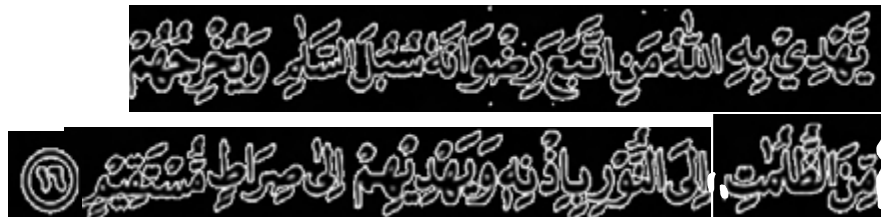 يَّهْدِيْ بِهِ اللّٰهُ مَنِ اتَّبَعَ رِضْوَانَهٗ سُبُلَ السَّلٰمِ وَيُخْرِجُهُمْ
مِّنَ الظُّلُمٰتِ اِلَى النُّوْرِ بِاِذْنِهٖ وَيَهْدِيْهِمْ اِلٰى صِرَاطٍ مُّسْتَقِيْمٍ ١٦